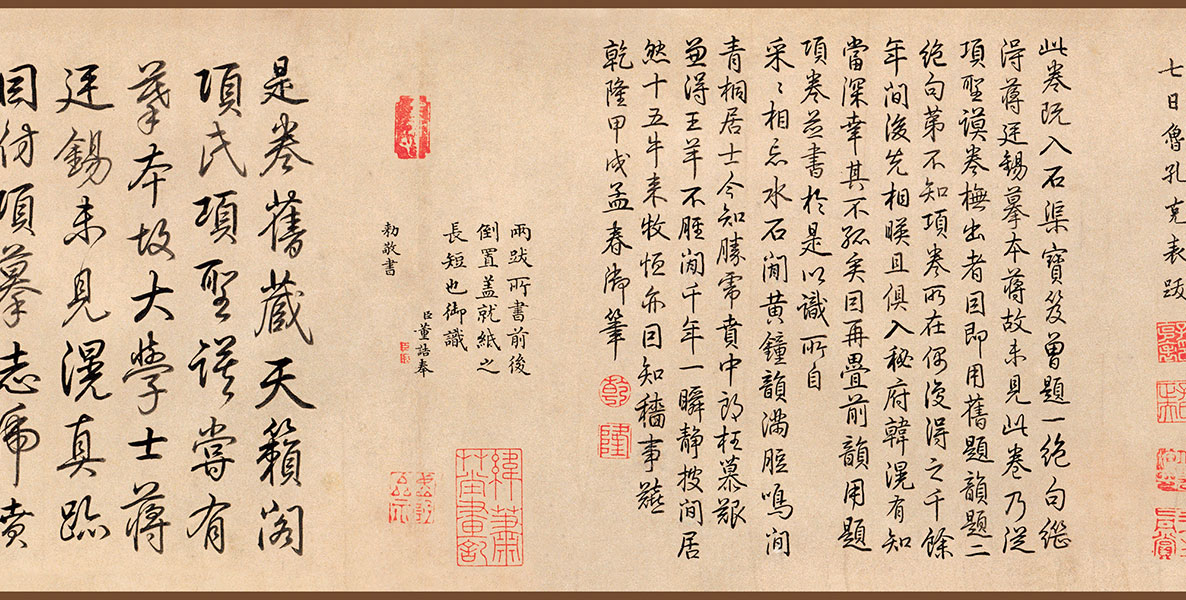 七日魯孔克表跋
此卷既入石渠寶笈曾題一絶句繼
得蔣廷錫摹本蔣故未見此卷乃從
項聖謨卷橅出者因即用舊題韻題二
絶句第不知項卷所在偶復得之千餘
年間後先相暎且俱入秘府韓滉有知
當深幸其不孤矣因再疊前韻用題
項卷並書於是以識所自
采〻相忘水石間黃鐘韻滿脰鳴間
青桐居士今知勝虎賁中郎枉慕艱
並得王羊不脛間千年一瞬靜披間居
然十五牛來牧恒亦因知穡事艱
乾隆甲戌孟春御筆
乾
隆
兩跋所書前後
倒置蓋就紙之
長短也御識
臣董誥奉
勅敬書
是卷舊藏天籟閣
項氏項聖謨嘗有
摹本故大學士蔣
廷錫未見滉真跡
因仿項摹志虎賁